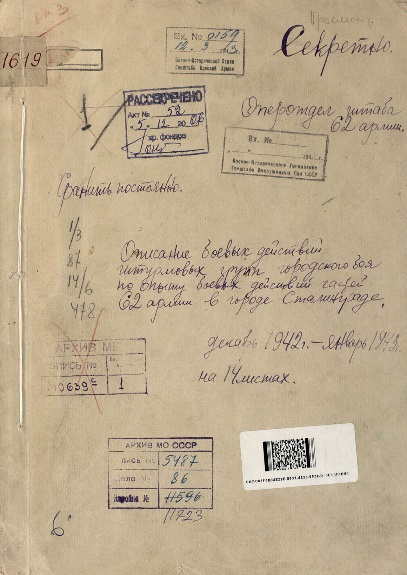 1619
Вх. № 0159
12. 3
Военно-Исторический Отдел
Генштаба Красной Армии
Секретно.
РАССЕКРЕЧЕНО
Акт № 52
5. 12 20 06
хр. фондов
Оперотдел штаба
62 армии.
Вх. №
194 г.
Военно-Историческое Управление
Генштаба Вооруженных Сил СССР
Хранить постоянно.
1/3
87
14/6
478
Описание боевых действий
штурмовых групп городского боя
по опыту боевых действий частей
62 армии в городе Сталинграде.
декабрь 1942 г. – январь 1943 г.
на 14 листах.
АРХИВ МО
опись №
110639с
1
АРХИВ МО СССР
опись № 5487
дело № 86
коробка № 11596
11723
6